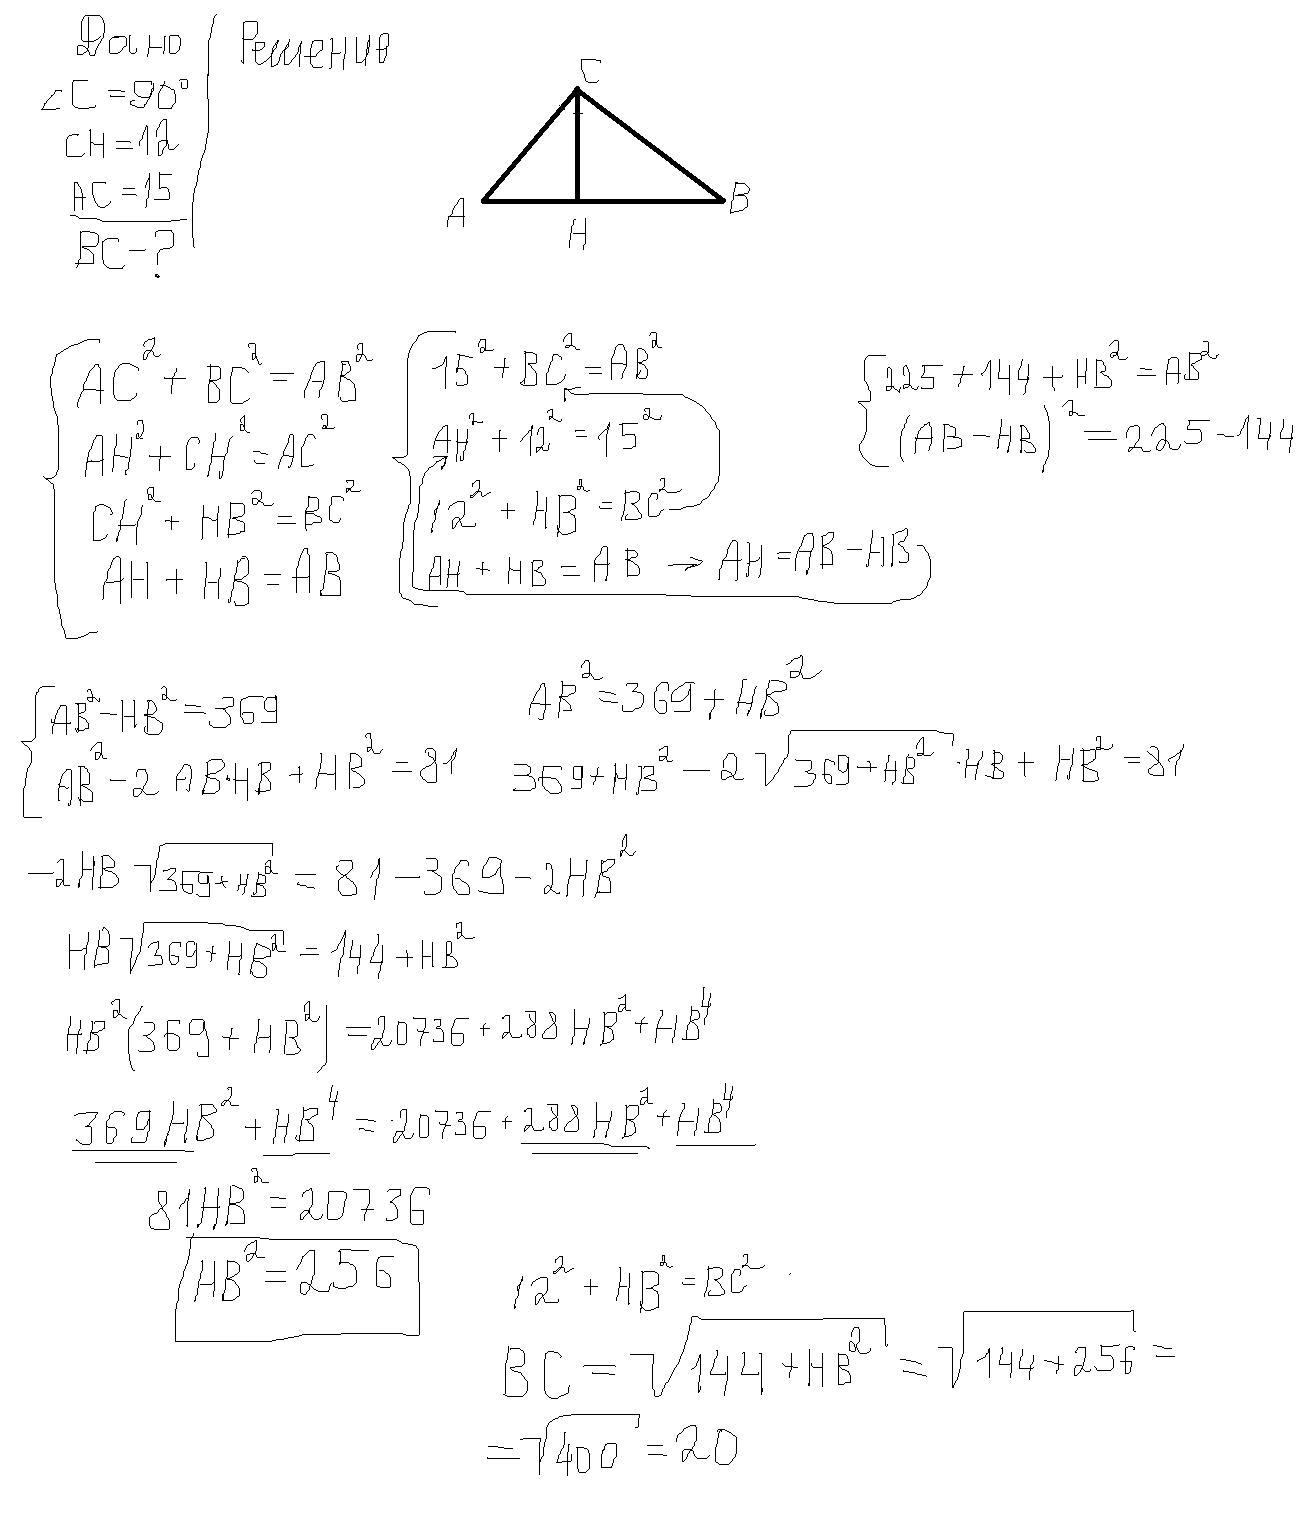 Дано
Решение
∠C=90°
CH=12
AC=15
BC-?
C
A
H
B
AC²+BC²=AB²
AH²+CH²=AC²
CH²+HB²=BC²
AH+HB=AB
15²+BC²=AB²
AH²+12²=15²
12²+HB²=BC²
AH+HB=AB → AH=AB-HB
225+144+HB²=AB²
(AB-HB)²=225-144
AB²-HB²=369
AB²-2AB·HB+HB²=81
AB²=369+HB²
369+HB²-2√(369+HB²)·HB+HB²=81
-2HB√(369+HB²)=81-369-2HB²
HB√(369+HB²)=144+HB²
HB²(369+HB²)=20736+288HB²+HB⁴
369HB²+HB⁴=20736+288HB²+HB⁴
81HB²=20736
HB²=256
12²+HB²=BC²
BC=√(144+HB²)=√(144+256)=
=√400=20